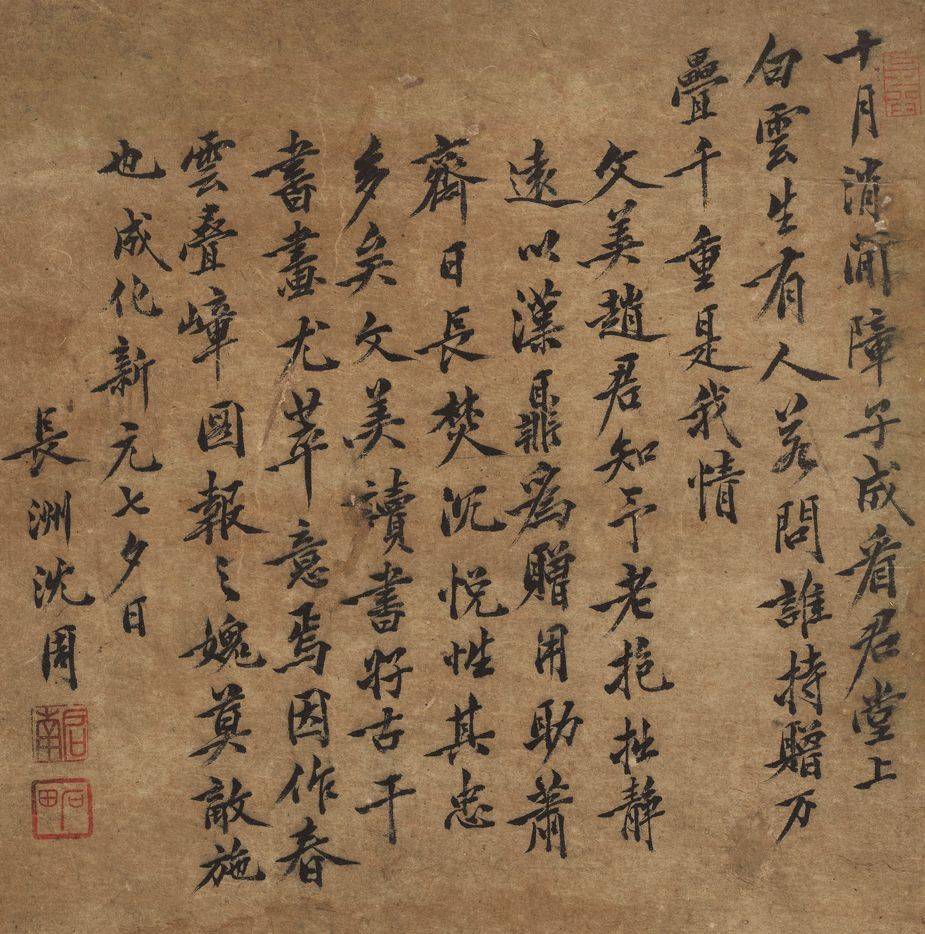 十月消閒障子成看君堂上
白雲生有人若問誰持贈万
疊千重是我情
文美趙君知予老抱拙靜
遠以漢鼎為贈用助蕭
齋日長焚沉悅性其忠
多矣文美讀書好古于
書畫尤萃意焉因作春
雲疊嶂圖報之愧莫敵施
也成化新元七夕日
長洲沈周
啟南
石田